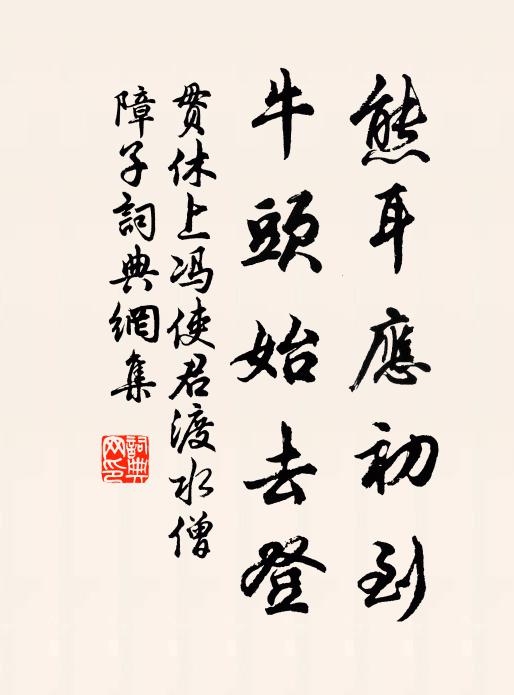 熊耳應初到
牛頭始去登
貫休上冯使君渡水僧
障子詞典網集
詞典网印